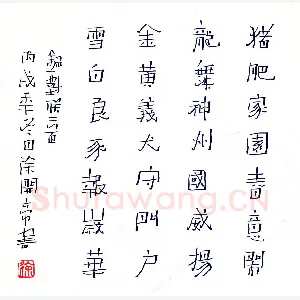 猪肥家園喜意闹
龍舞神州國威揚
金黄義犬守門户
雪白良豕報歲華
丙戌年冬日徐開
Shufawang.CN